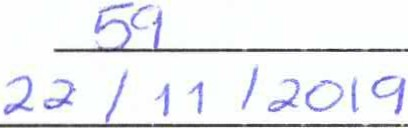 59
22/11/2019